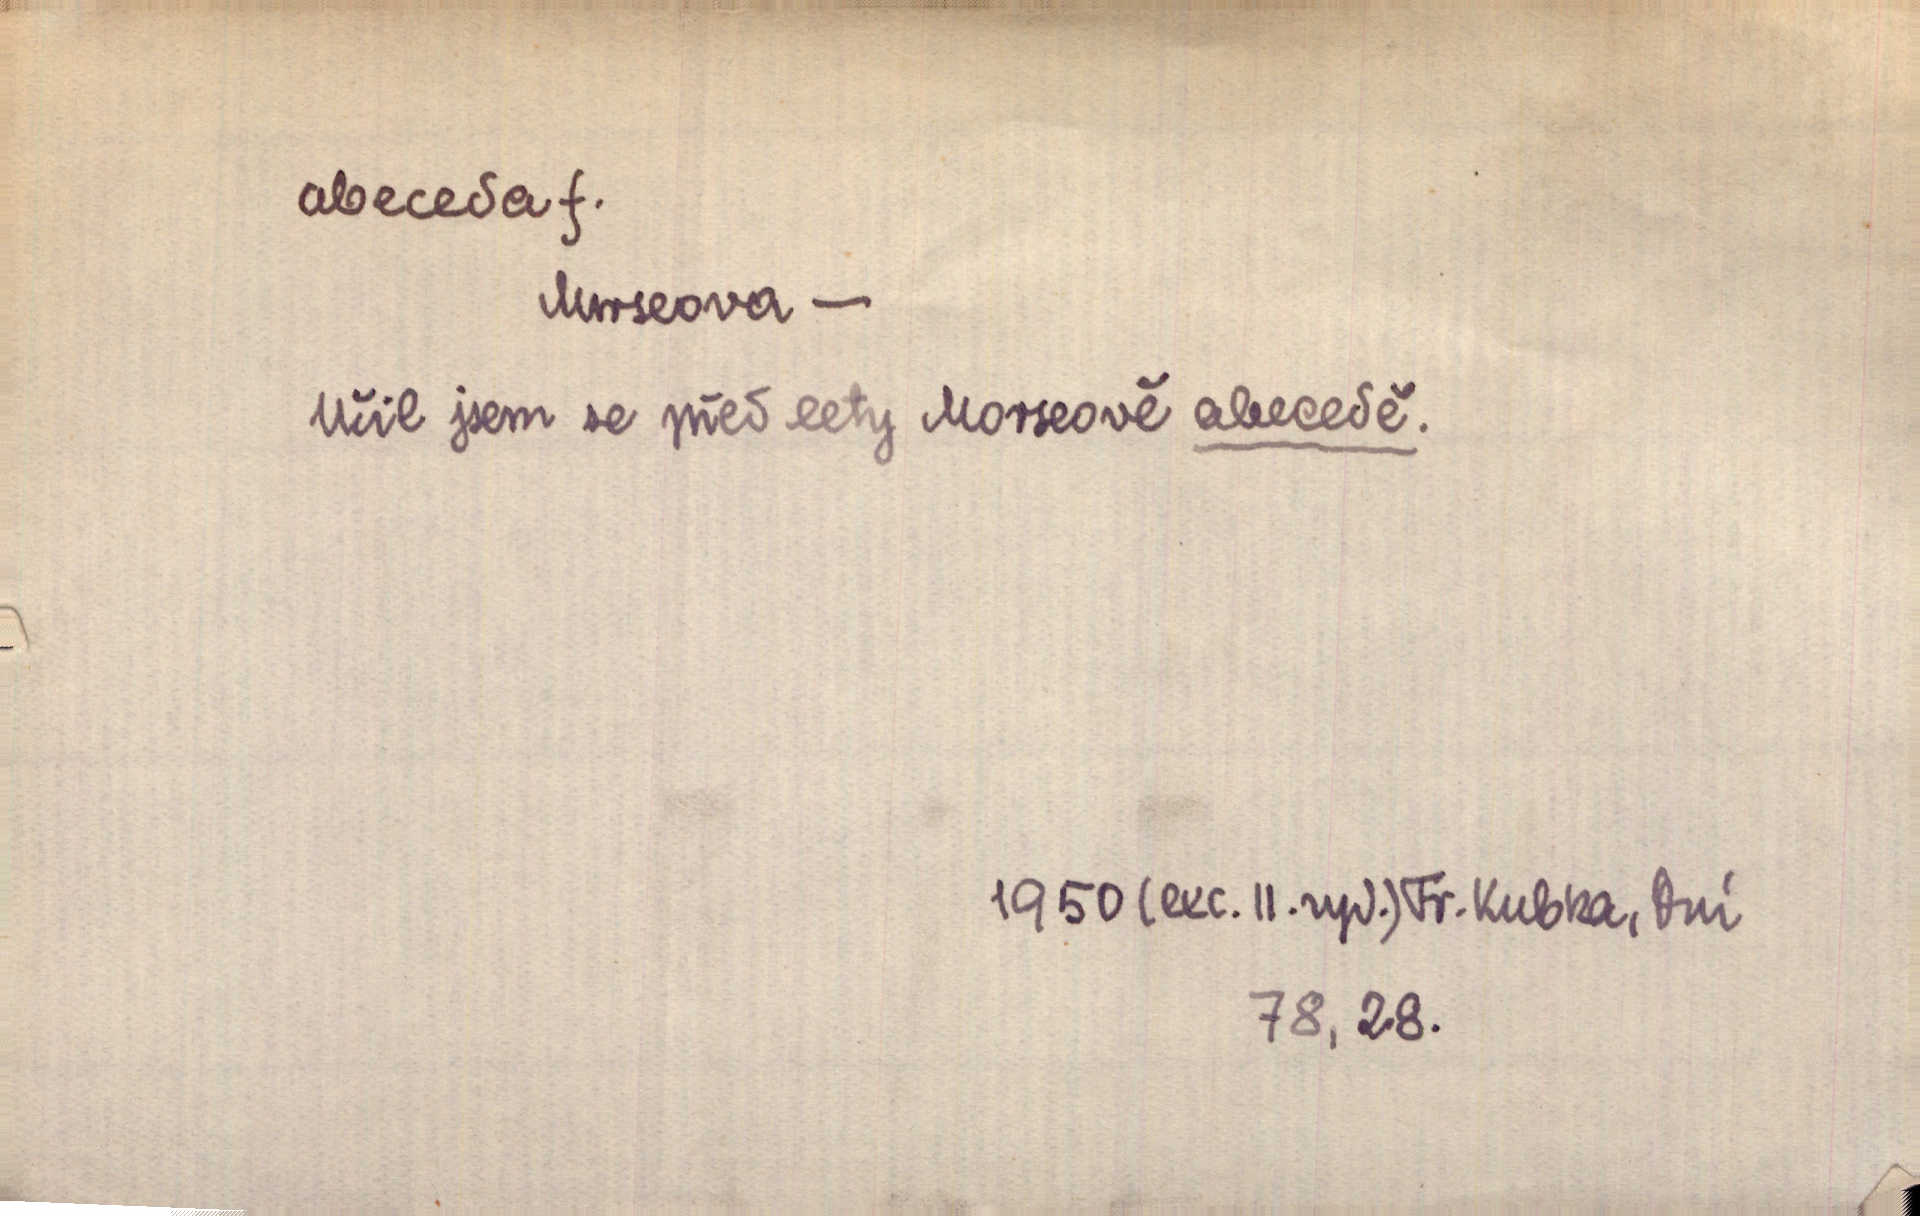 abeceda f.
Morseova —
Učil jsem se před lety Morseově abecedě.
1950 (exc. II. vyd.) Fr. Kubka, Dní
78, 28.